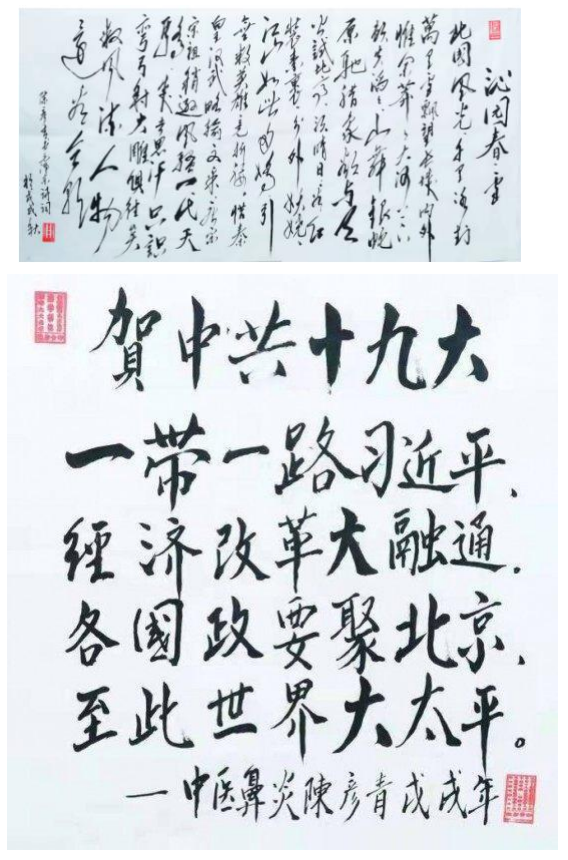 沁园春雪
北国风光千里冰封
萬里雪飘望长城内外
惟余莽々大河上下
顿失滔々山舞银蛇
原驰腊象欲与天
公试比高须晴日看红
装素裹分外妖娆
江山如此多娇引
無数英雄竞折腰惜秦
皇汉武略输文采唐宗
宋祖稍逊风骚一代天
骄成吉思汗只识
弯弓射大雕俱往矣
数风流人物
还看今朝
於戊戌秋
賀中共十九大
一带一路习近平、
經济改革大融通.
各國政要聚北京、
至此世界大太平。
一中医鼻炎陳彦青戊戌年